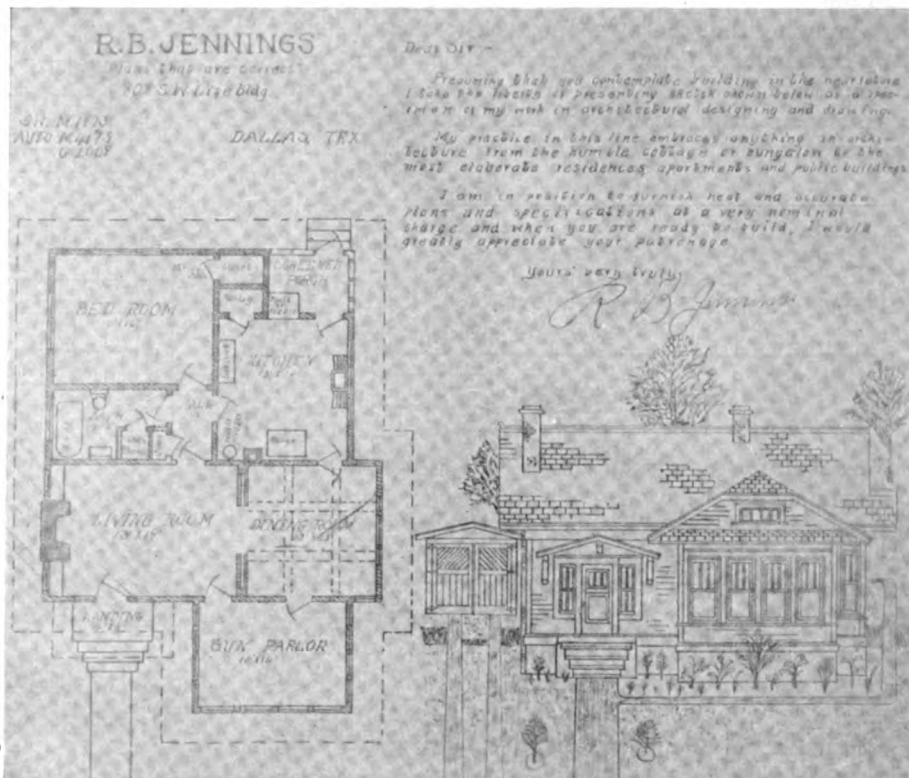 R.B. JENNINGS
"Plans that are correct"
S.W. Life Bldg.
DALLAS, TEX
Dear Sir:-
Presuming that you contemplate building in the near future
I take the liberty of presenting sketch shown below as a spec-
imen of my work in architectural designing and drawing.
My practice in this line embraces anything in archi-
tecture from the humble cottage or bungalow to the
most elaborate residences, apartments and public buildings
I am in position to furnish neat and accurate
plans and specifications at a very nominal
charge and when you are ready to build, I would
greatly appreciate your patronage
Yours very truly,
R B Jennings
PORCH
BED ROOM
KITCHEN
LIVING ROOM
DINING ROOM
LANDING
SUN PARLOR